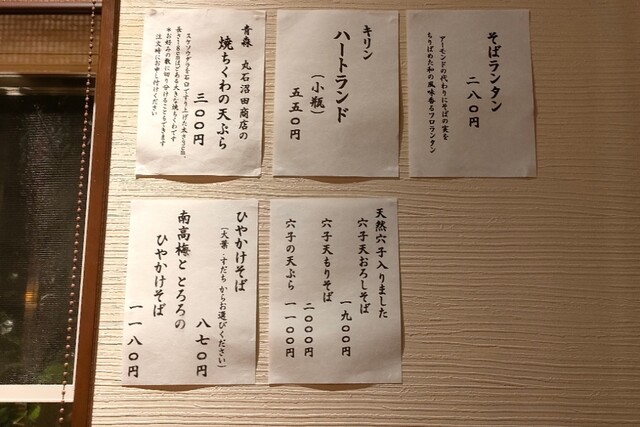 そばランタン
二八〇円
アーモンドの代わりにそばの実を
ちりばめた和の風味香るフロランタン
キリン
ハートランド
（小瓶）
五五〇円
青森 丸石沼田商店の
焼ちくわの天ぷら
三〇〇円
スケソウダラを石臼ですり上げた太さ3cm、
長さ18cmほどある大きな焼ちくわです
＊お好みの数に切り分けることもできます
注文時にお申し付けください
天然穴子入りました
穴子天おろしそば
一九〇〇円
穴子天もりそば
二〇〇〇円
穴子の天ぷら
一一〇〇円
ひやかけそば
（大葉・すだち からお選びください）
八七〇円
南高梅と とろろの
ひやかけそば
一一八〇円